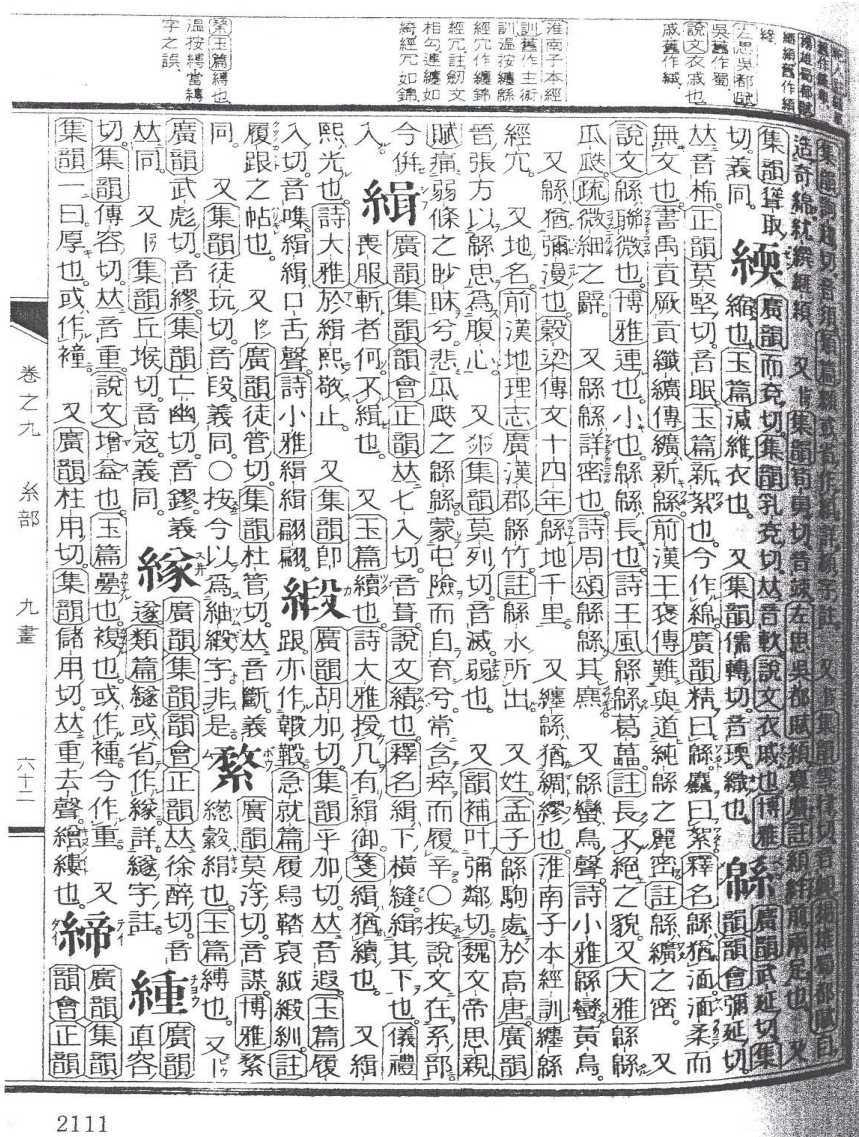 左思吳都賦
吳舊作蜀
說文衣戚也
戚舊作緘
淮南子本經
訓舊作主術
訓溫按纏緜
經冗作纏錦
經冗註劒文
相勾連纏如
綺經冗如錦
繁玉篇縛也
溫按縛當縛
字之誤
集韻聳取切義同 緛 廣韻而兗切集韻乳兗切𠀤音軟說文衣戚也博雅縮也玉篇減縫衣也 又集韻儒轉切音瑌織也 緜 廣韻武延切集韻韻會彌延切
𠀤音棉正韻莫堅切音眠玉篇新絮也今作綿廣韻精曰緜麤曰絮釋名緜猶湎湎柔而
無文也書禹貢厥貢纖纊傳纊新緜前漢王褒傳難與道純緜之麗密註緜纊之密 又
說文緜聯微也博雅連也小也緜緜長也詩王風緜緜葛藟註長不絕之貌又大雅緜緜
瓜瓞疏微細之辭 又緜緜詳密也詩周頌緜緜其麃 又緜蠻鳥聲詩小雅緜蠻黃鳥
又緜猶彌漫也穀梁傳文十四年緜地千里 又纏緜猶綢繆也淮南子本經訓纏緜
經冗 又地名前漢地理志廣漢郡緜竹註緜水所出 又姓孟子緜駒處於高唐廣韻
晉張方以緜思爲腹心 又集韻莫列切音滅弱也 又韻補叶彌鄰切魏文帝思親
賦痛弱條之眇昧兮悲瓜瓞之緜緜蒙屯險而自育兮常含瘁而履辛○按說文在系部
今倂入 緝 廣韻集韻韻會正韻𠀤七入切音葺說文績也釋名緝下橫縫緝其下也儀禮
喪服斬者何不緝也 又玉篇續也詩大雅授几有緝御箋緝猶續也 又緝
熙光也詩大雅於緝熙敬止 又集韻卽
入切音喋緝緝口舌聲詩小雅緝緝翩翩 緞 廣韻胡加切集韻乎加切𠀤音遐玉篇履
跟亦作䪗䪗急就篇履舄鞜裒絨緞紃註
履跟之帖也 又廣韻徒管切集韻杜管切𠀤音斷義
同 又集韻徒玩切音段義同○按今以爲紬緞字非是 繁 廣韻莫浮切音謀博雅繁
緫縠絹也玉篇縛也 又
廣韻武彪切音繆集韻亡幽切音鏐義
𠀤同 又集韻丘堠切音宼義同 緣 廣韻集韻韻會正韻𠀤徐醉切音
遂類篇繸或省作緣詳繸字註 緟 廣韻直容
切集韻傳容切𠀤音重說文增益也玉篇疊也複也或作褈今作重 又
集韻一曰厚也或作褈 又廣韻柱用切集韻儲用切𠀤重去聲繒縷也 締 廣韻集韻
韻會正韻
卷之九 糸部 九畫 六十二
2111